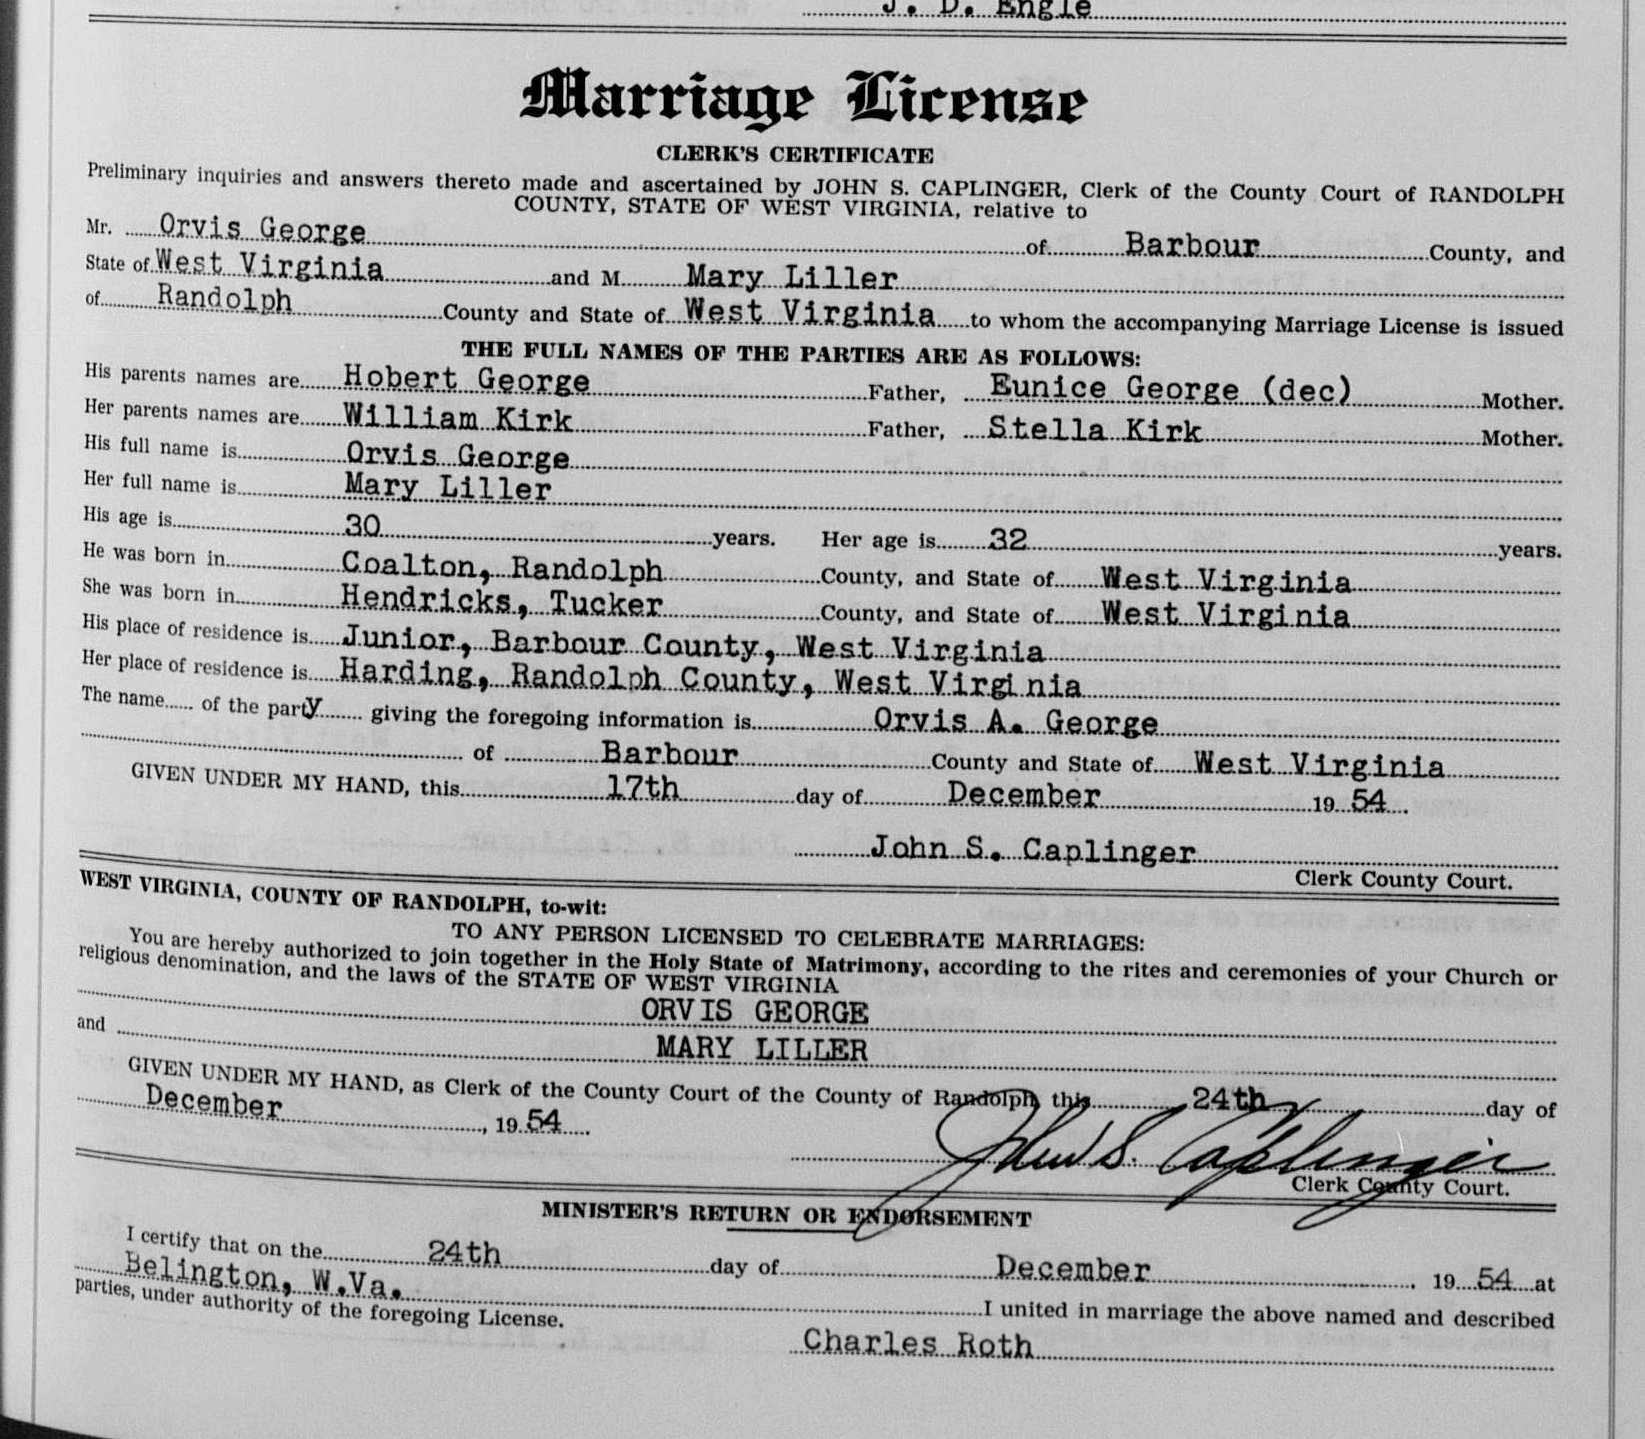 J. D. Engle
Marriage License
CLERK'S CERTIFICATE
Preliminary inquiries and answers thereto made and ascertained by JOHN S. CAPLINGER, Clerk of the County Court of RANDOLPH
COUNTY, STATE OF WEST VIRGINIA, relative to
Mr. Orvis George of Barbour County, and
State of West Virginia and M Mary Liller
of Randolph County and State of West Virginia to whom the accompanying Marriage License is issued
THE FULL NAMES OF THE PARTIES ARE AS FOLLOWS:
His parents names are Hobert George Father, Eunice George (dec) Mother.
Her parents names are William Kirk Father, Stella Kirk Mother.
His full name is Orvis George
Her full name is Mary Liller
His age is 30 years. Her age is 32 years.
He was born in Coalton, Randolph County, and State of West Virginia
She was born in Hendricks, Tucker County, and State of West Virginia
His place of residence is Junior, Barbour County, West Virginia
Her place of residence is Harding, Randolph County, West Virginia
The name of the party giving the foregoing information is Orvis A. George
of Barbour County and State of West Virginia
GIVEN UNDER MY HAND, this 17th day of December 19 54
John S. Caplinger
Clerk County Court.
WEST VIRGINIA, COUNTY OF RANDOLPH, to-wit:
TO ANY PERSON LICENSED TO CELEBRATE MARRIAGES:
You are hereby authorized to join together in the Holy State of Matrimony, according to the rites and ceremonies of your Church or
religious denomination, and the laws of the STATE OF WEST VIRGINIA
ORVIS GEORGE
and MARY LILLER
GIVEN UNDER MY HAND, as Clerk of the County Court of the County of Randolph, this 24th day of
December, 19 54
John S. Caplinger
Clerk County Court.
MINISTER'S RETURN OR ENDORSEMENT
I certify that on the 24th day of December, 19 54 at
Belington, W.Va. I united in marriage the above named and described
parties, under authority of the foregoing License.
Charles Roth